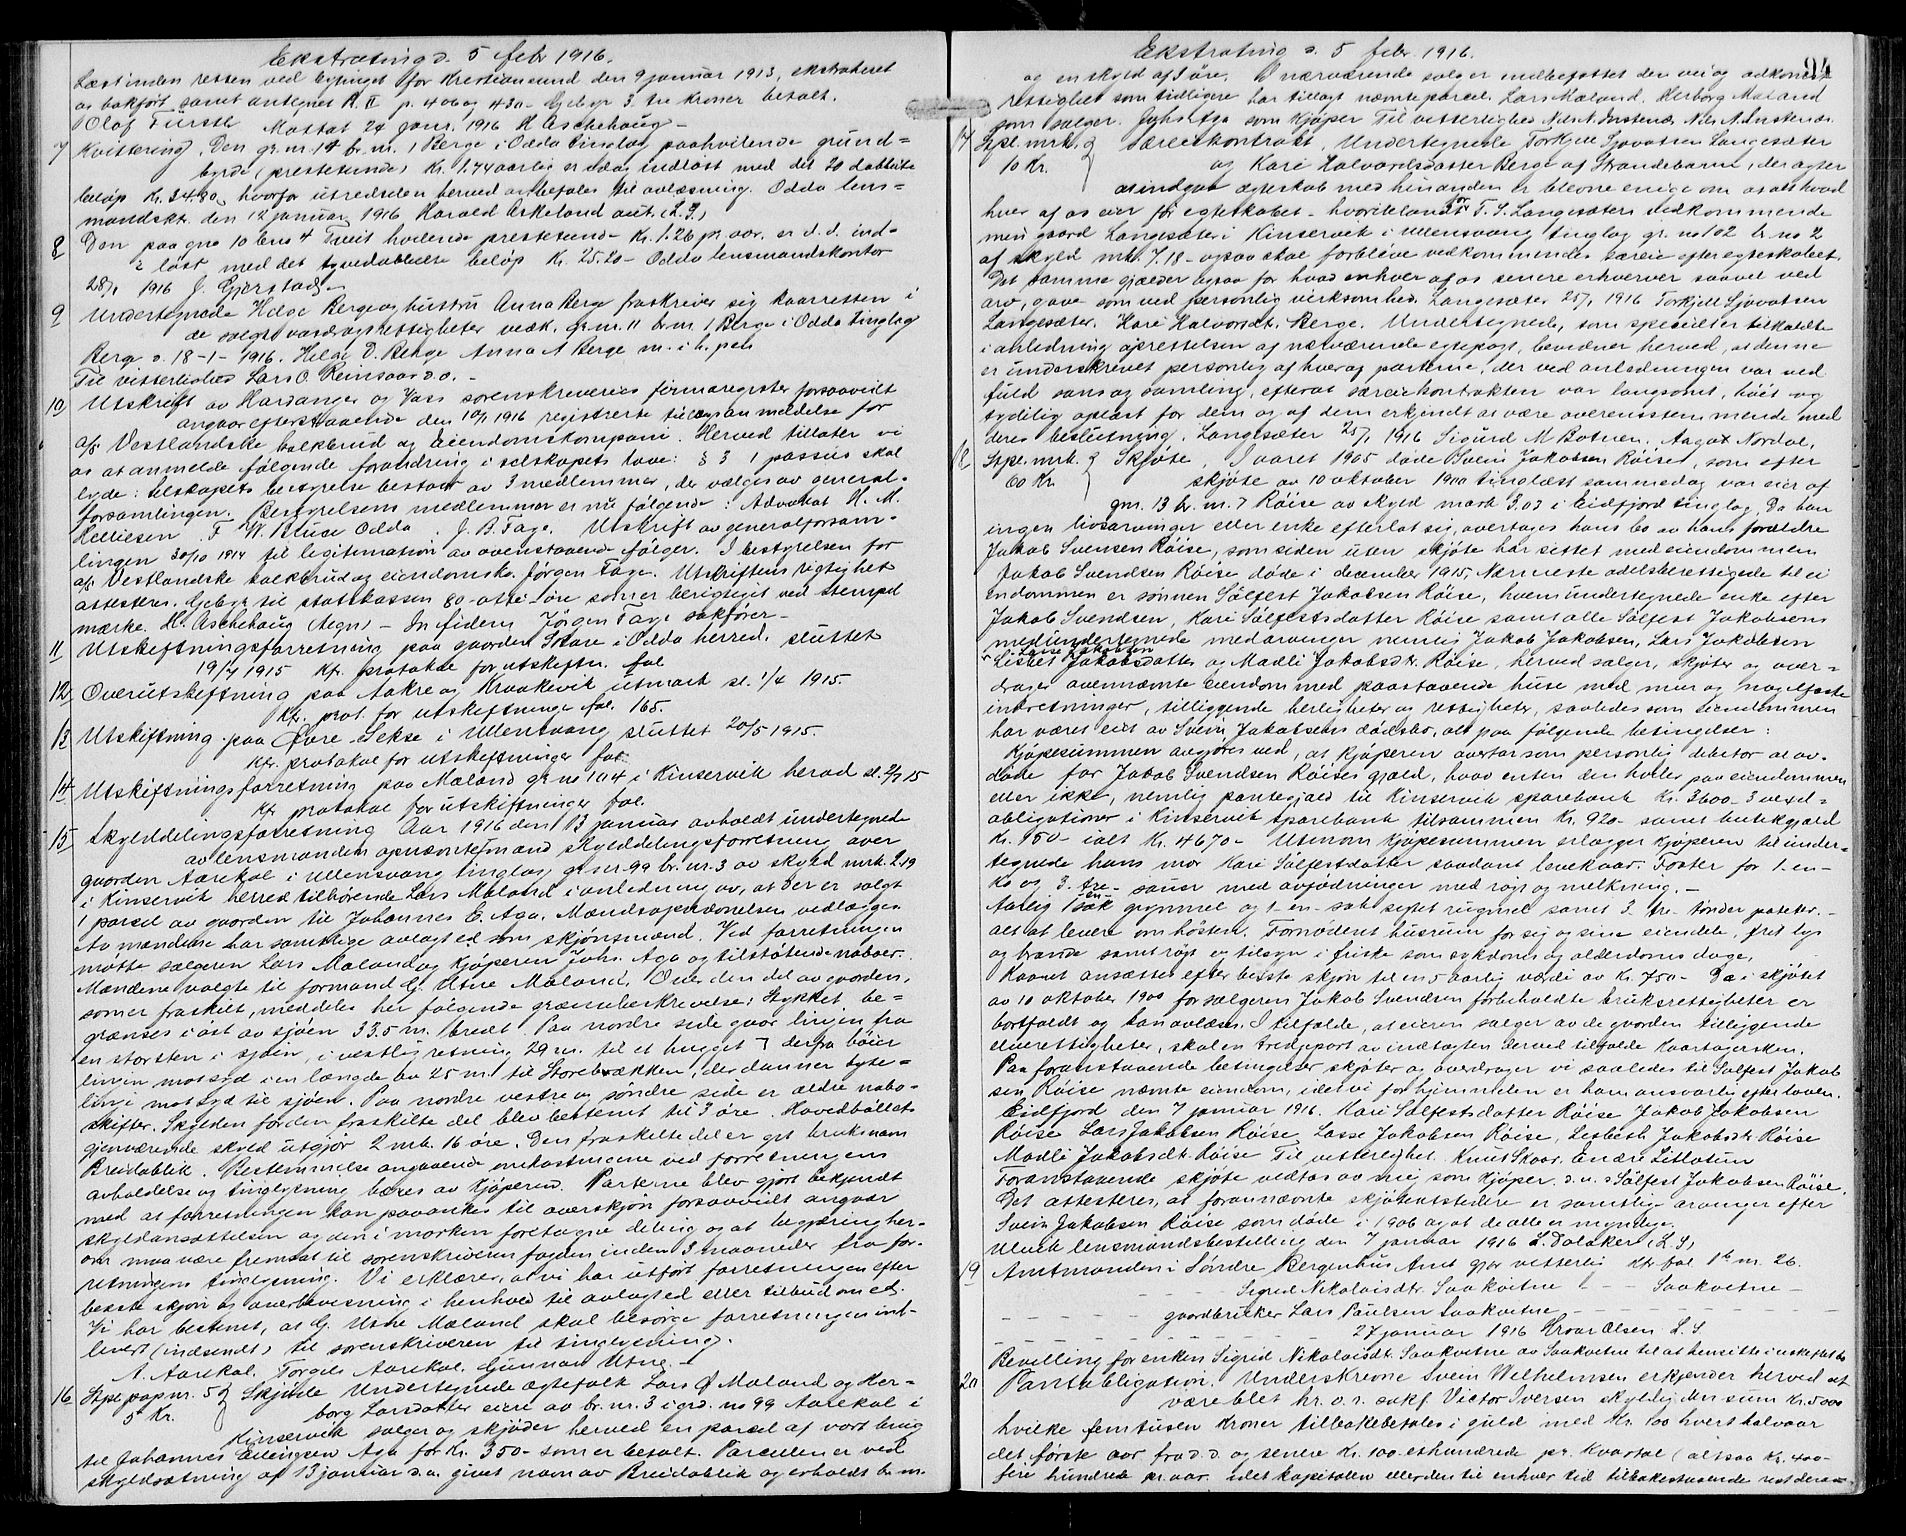 Ekstrating d. 5 febr 1916.
Læst inden retten ved bytinget for Kristiansund den 9 januar 1913, ekstraheret
og bokført samt antegnet R. II p. 406 og 430 - Gebyr 3 tre kroner betalt.
Olaf Fürsth Mottat 24 janr. 1916 H Aschehoug -
7 Kvittering. Den gr.nr. 14 br.nr. 1 Berge i Odda tinglag paahvilende grund=
byrde (prestetiende) Kr. 1.74 aarlig er idag indløst med det 20 dobbelte
beløp Kr. 34.80, hvorfor utredselen herved anbefales til avlæsning. Odda lens=
mandsktr. den 12 januar 1916 Harald Askeland aut. (L.S.)
8 Den paa gno 10 bno 4 Tveit hvilende prestetiende Kr. 1.26 pr. aar. er d.d. ind=
løst med det tyvedobbelte beløp Kr. 25.20 - Odda lensmandskontor
28/1 1916 J. Gjerstad -
9 Undertegnede Helge Berge og hustru Anna Berge fraskriver sig kaarretten i
de solgte vasdragsrettigheter væk. gr.nr. 11 br.nr. 1 Berge i Odda tinglag
Berge d. 18-1-1916. Helge D. Berge Anna A Berge m. i h. pen
Til vitterlighed Lars O. Reinsaas d.o. -
10 Utskrift av Hardanger og Voss sorenskriveries firmaregister forsaavidt
angaar efterstaaende den 10/1 1916 registrerte tillægsanmeldelse for
a/s Vestlandske kalkbrud og Eiendomskompani. Herved tillater vi
os at anmelde følgende forandring i selskapets love: § 3 1 passus skal
lyde: selskapets bestyrelse bestaar av 3 medlemmer, der vælges av general=
forsamlingen. Bestyrelsens medlemmer er nu følgende: Advokat H. M.
Helliesen F. W. Bluse Odda J. B. Faye. Utskrift av generalforsam=
lingen 30/10 1914 til legitimation av ovenstaaende følger. I bestyrelsen for
a/s Vestlandske kalkbrud og eiendomsk. Jørgen Faye. Utskriftens rigtighet
attesteres. Gebyr til statskassen 80 - otti - øre som er berigtiget ved stempel
mærke. H. Aschehoug (Segn) - In fidem Jørgen Faye sakfører -
11 Utskiftningsforretning paa gaarden Skare i Odda herred, sluttet
19/4 1915 kfr. protokol for utskiftn. fol
12 Overutskiftning paa Aakre og Kraakevik utmark sl. 1/4 1915.
kfr. prot. for utskiftninge fol. 165.
13 Utskiftning paa Øvre Sekse i Ullensvang sluttet 20/5 1915.
kfr. protokol for utskiftninger fol.
14 Utskiftningsforretning paa Maland gr.no 104 i Kinservik herad sl. 2/7 15
kfr. protokol for utskiftninger fol.
15 Skylddelingsforretning Aar 1916 den 13 januar avholdt undertegnede
av lensmanden opnævnte mænd skylddelingsforretning over
gaarden Aarekol i Ullensvang tinglag gr.nr. 99 br.nr. 3 av skyld mrk. 2.19
i Kinservik herred tilhørende Lars Maland i anledning av, at der er solgt
1 parsel av gaarden til Johannes E. Aga. Mændsopnævnelsen vedlægges
Av mændene har samtlige avlagt ed som skjønsmænd. Ved forretningen
møtte sælgeren Lars Maland og kjøperen Johs. Aga og tilstøtende naboer.
Mændene valgte til formand G. Utne Maland. Over den del av gaarden,
som er fraskilt, meddeles her følgende grænsebeskrivelse: Stykket be=
grænses i øst av sjøen 33.5 m. bredt. Paa nordre side gaar linjen fra
en stor sten i sjøen, i vestlig retning 29 m. til et hugget ┐ derfra bøier
linjen mot syd i en længde av 25 m. til Storebækken, der danner byte=
linje mot syd til sjøen. Paa nordre vestre og søndre side er ældre nabo=
skifter. Skylden for den fraskilte del blev bestemt til 3 øre. Hovedbølets
gjenværende skyld utgjør 2 mrk. 16 øre. Den fraskilte del er git bruksnavn
Breidablik. Bestemmelse angaaende omkostningene ved forretningens
avholdelse og tinglysning bæres av kjøperen. Parterne blev gjort bekjendt
med at forretningen kan paaankes til overskjøn forsaavidt angaar
skyldansættelsen og den i marken foretagne deling og at begjæring her=
om maa være fremsat til sorenskriveren fogden inden 3 maaneder fra for=
retningens tinglysning. Vi erklærer, at vi har utført forretningen efter
bedste skjøn og overbevisning i henhold til avlagt ed eller tilbud om ed.
Vi har bestemt, at G. Utne Maland skal besørge forretningen ind=
levert (indsendt) til sorenskriveren til tinglysning.
A. Aarekol. Torgils Aarekol. Gunnar Utne. -
16 Stpl. pap nr. 5 } Skjøde Undertegnede ægtefolk Lars Ø Maland og Her=
5 Kr. borg Larsdatter eiere av br.nr. 3 i grd. no 99 Aarekol i
Kinservik sælger og skjøder herved en parsel af vort brug
til Johannes Ellingsen Aga for Kr. 350 - som er betalt. Parcellen er ved
skyldsætning af 13 januar d.a. givet navn av Breidablik og erholdt br.nr.
Ekstrating d. 5 febr. 1916.
94
og en skyld af 3 øre. I nærværende salg er indbefattet den vei og adkomst
rettighet som tidligere har tillagt nævnte parcel. Lars Maland. Herborg Maland
som sælger. Johs. Aga som kjøper Til vitterlighed Nils N. Instenæs Nils N. Instenæs.
17 Stpl. mrk. } Særeiekontrakt. Undertegnede Torkjell Sjovatsen Langesæter
10 Kr. og Kari Halvardsdatter Berge af Strandebarm, der agter
at indgaa ægteskab med hinanden er blevne enige om at alt hvad
hver af os eier før egteskabet - hvoriblandt for T. S. Langesæters vedkommende
min gaard Langesæter i Kinservik i Ullensvang tinglag gr. no 102 br. no 2
af skyld mrk. 7.18 - ogsaa skal forblive vedkommendes særeie efter egteskabet.
Det samme gjælder ogsaa for hvad enhver af os senere erhverver saavel ved
arv, gave som ved personlig virksomhed. Langesæter 25/1 1916 Torkjell Sjovatsen
Langesæter. Kari Halvorsdt. Berge. Undertegnede, som specielt er tilkaldte
i anledning oprettelsen af nærværende egtepagt, bevidner herved, at denne
er underskrevet personlig af hver af parterne, der ved anledningen var ved
fuld sans og samling, efterat særeiekontrakten var langsomt, høit og
tydelig oplæst for dem og af dem erkjendt at være overensstemmende med
deres beslutning. Langesæter 25/1 1916 Sigurd M Botnen. Aagot Nordal.
18 Stpl. mrk. } Skjøte. I aaret 1905 døde Svein Jakobsen Røise, som efter
60 Kr. skjøte av 10 oktober 1900 tinglæst sammedag var eier af
gnr. 13 br.nr. 7 Røise av skyld mark 3.03 i Eidfjord tinglag. Da han
ingen livsarvinger eller enke efterlot sig, overtoges hans bo av hans forældre
Jakob Svensen Røise, som siden uten skjøte har sittet med eiendommen
Jakob Svendsen Røise døde i december 1915, Nærmeste odelsberettigede til ei
endommen er sønnen Sølfest Jakobsen Røise, hvem undertegnede enke efter
Jakob Svendsen, Kari Sølfestsdatter Røise samt alle Sølfest Jakobsens
medundertegnede medarvinger nemlig Jakob Jakobsen, Lars Jakobsen
Lasse Jakobsen
Lisbet Jakobsdatter og Madli Jakobsdt. Røise, herved sælger, skjøter og over=
drager ovennævnte eiendom med paastaaende huse med mur og nagelfaste
indretninger, tilliggende herligheter og rettigheter, saaledes som eiendommen
har været eiet av Svein Jakobsens dødsbo, alt paa følgende betingelser:
Kjøpesummen avgjøres ved, at kjøperen overtar som personlig debitor al av=
døde far Jakob Svendsen Røises gjæld, hvad enten den hviler paa eiendommen
eller ikke, nemlig pantegjæld til Kinservik sparebank Kr. 3600 - 3 vexel=
obligationer i Kinservik sparebank tilsammen Kr. 920 - samt butikgjæld
Kr. 150 - ialt Kr. 4670 - Utenom kjøpesummen erlægger kjøperen til under=
tegnede hans mor Kari Sølfestdatter saadant levekaar: Foster for 1 - en -
ko og 3 - tre - sauer med avfødninger med røgt og melkning. -
Aarlig 1 - en - sæk grynmel og 1 - en - sæk siktet rugmel samt 3 - tre - tønder poteter. -
alt at levere om høsten. Fornødent husrum for sig og sine eiendele, frit lys
og brænde samt røgt og tilsyn i friske som sykdoms og alderdoms dage.
Kaaret ansættes efter bedste skjøn til en 5 aarlig værdi av Kr. 750 - De i skjøtet
av 10 oktober 1900 for sælgeren Jakob Svendsen forbeholdte bruksrettigheter er
bortfaldt og kan avlæses. I tilfælde, at eieren sælger av de gaarden tilliggende
elverettigheter, skal en tredjepart av indtægten derved tilfalde Kaartagersken.
Paa foranstaaende betingelser skjøter og overdrager vi saaledes til Sølfest Jakob
sen Røise nævnte eiendom, idet vi for hjemmelen er ham ansvarlig efter loven.
Eidfjord den 7 januar 1916. Kari Sølfestsdatter Røise Jakob Jakobsen
Røise Lars Jakobsen Røise, Lasse Jakobsen Røise, Lisbeth Jakobsdt. Røise
Madli Jakobsdt. Røise Til vitterlighet. Knut Skaar. Endre Litlatun
Foranstaaende skjøte vedtas av mig som kjøper. d.u.s Sølfest Jakobsen Røise.
Det attesteres, at forannævnte skjøteutstedere er samtlige arvinger efter
Svein Jakobsen Røise som døde i 1906 og at de alle er myndige.
Ulvik lensmandsbestilling den 7 januar 1916 L. Dolaker (L.S.)
19 Amtmanden i Søndre Bergenhus Amt gjør vitterlig kfr. fol. 1b m. 26.
- Sigrid Nikolaisdt. Saakvitne - Saakvitne -
- gaardbruker Lars Paulsen Saakvitne -
- 27 januar 1916 Hroar Olsen L.S.
Bevilling for enken Sigrid Nikolaisdt. Saakvitne av Saakvitne til at hensitte i uskiftet bo
20 Pantobligation. Underskrevne Svein Wilhelmsen erkjender herved at
være blet hr. o.r. sakf. Victor Iversen skyldig den sum Kr. 5000
hvilke femtusen kroner tilbakebetales i guld med Kr. 100 hvert halvaar
det første aar fra d.d. og senere Kr. 100 ethundrede pr. Kvartal (altsaa Kr. 400 -
fire hundrede pr. aar. idet kapitalen eller den til enhver tid tilbakestaaende rest derav